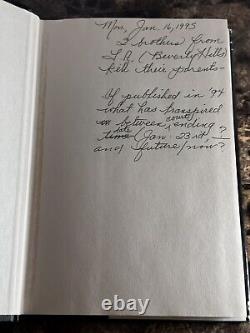 Mon, Jan. 16, 1995
2 brothers from
L A (Beverly Hills)
kill their parents -
If published in '94
what has transpired
between court ending
date (Jan. 23rd ?
and future/now?